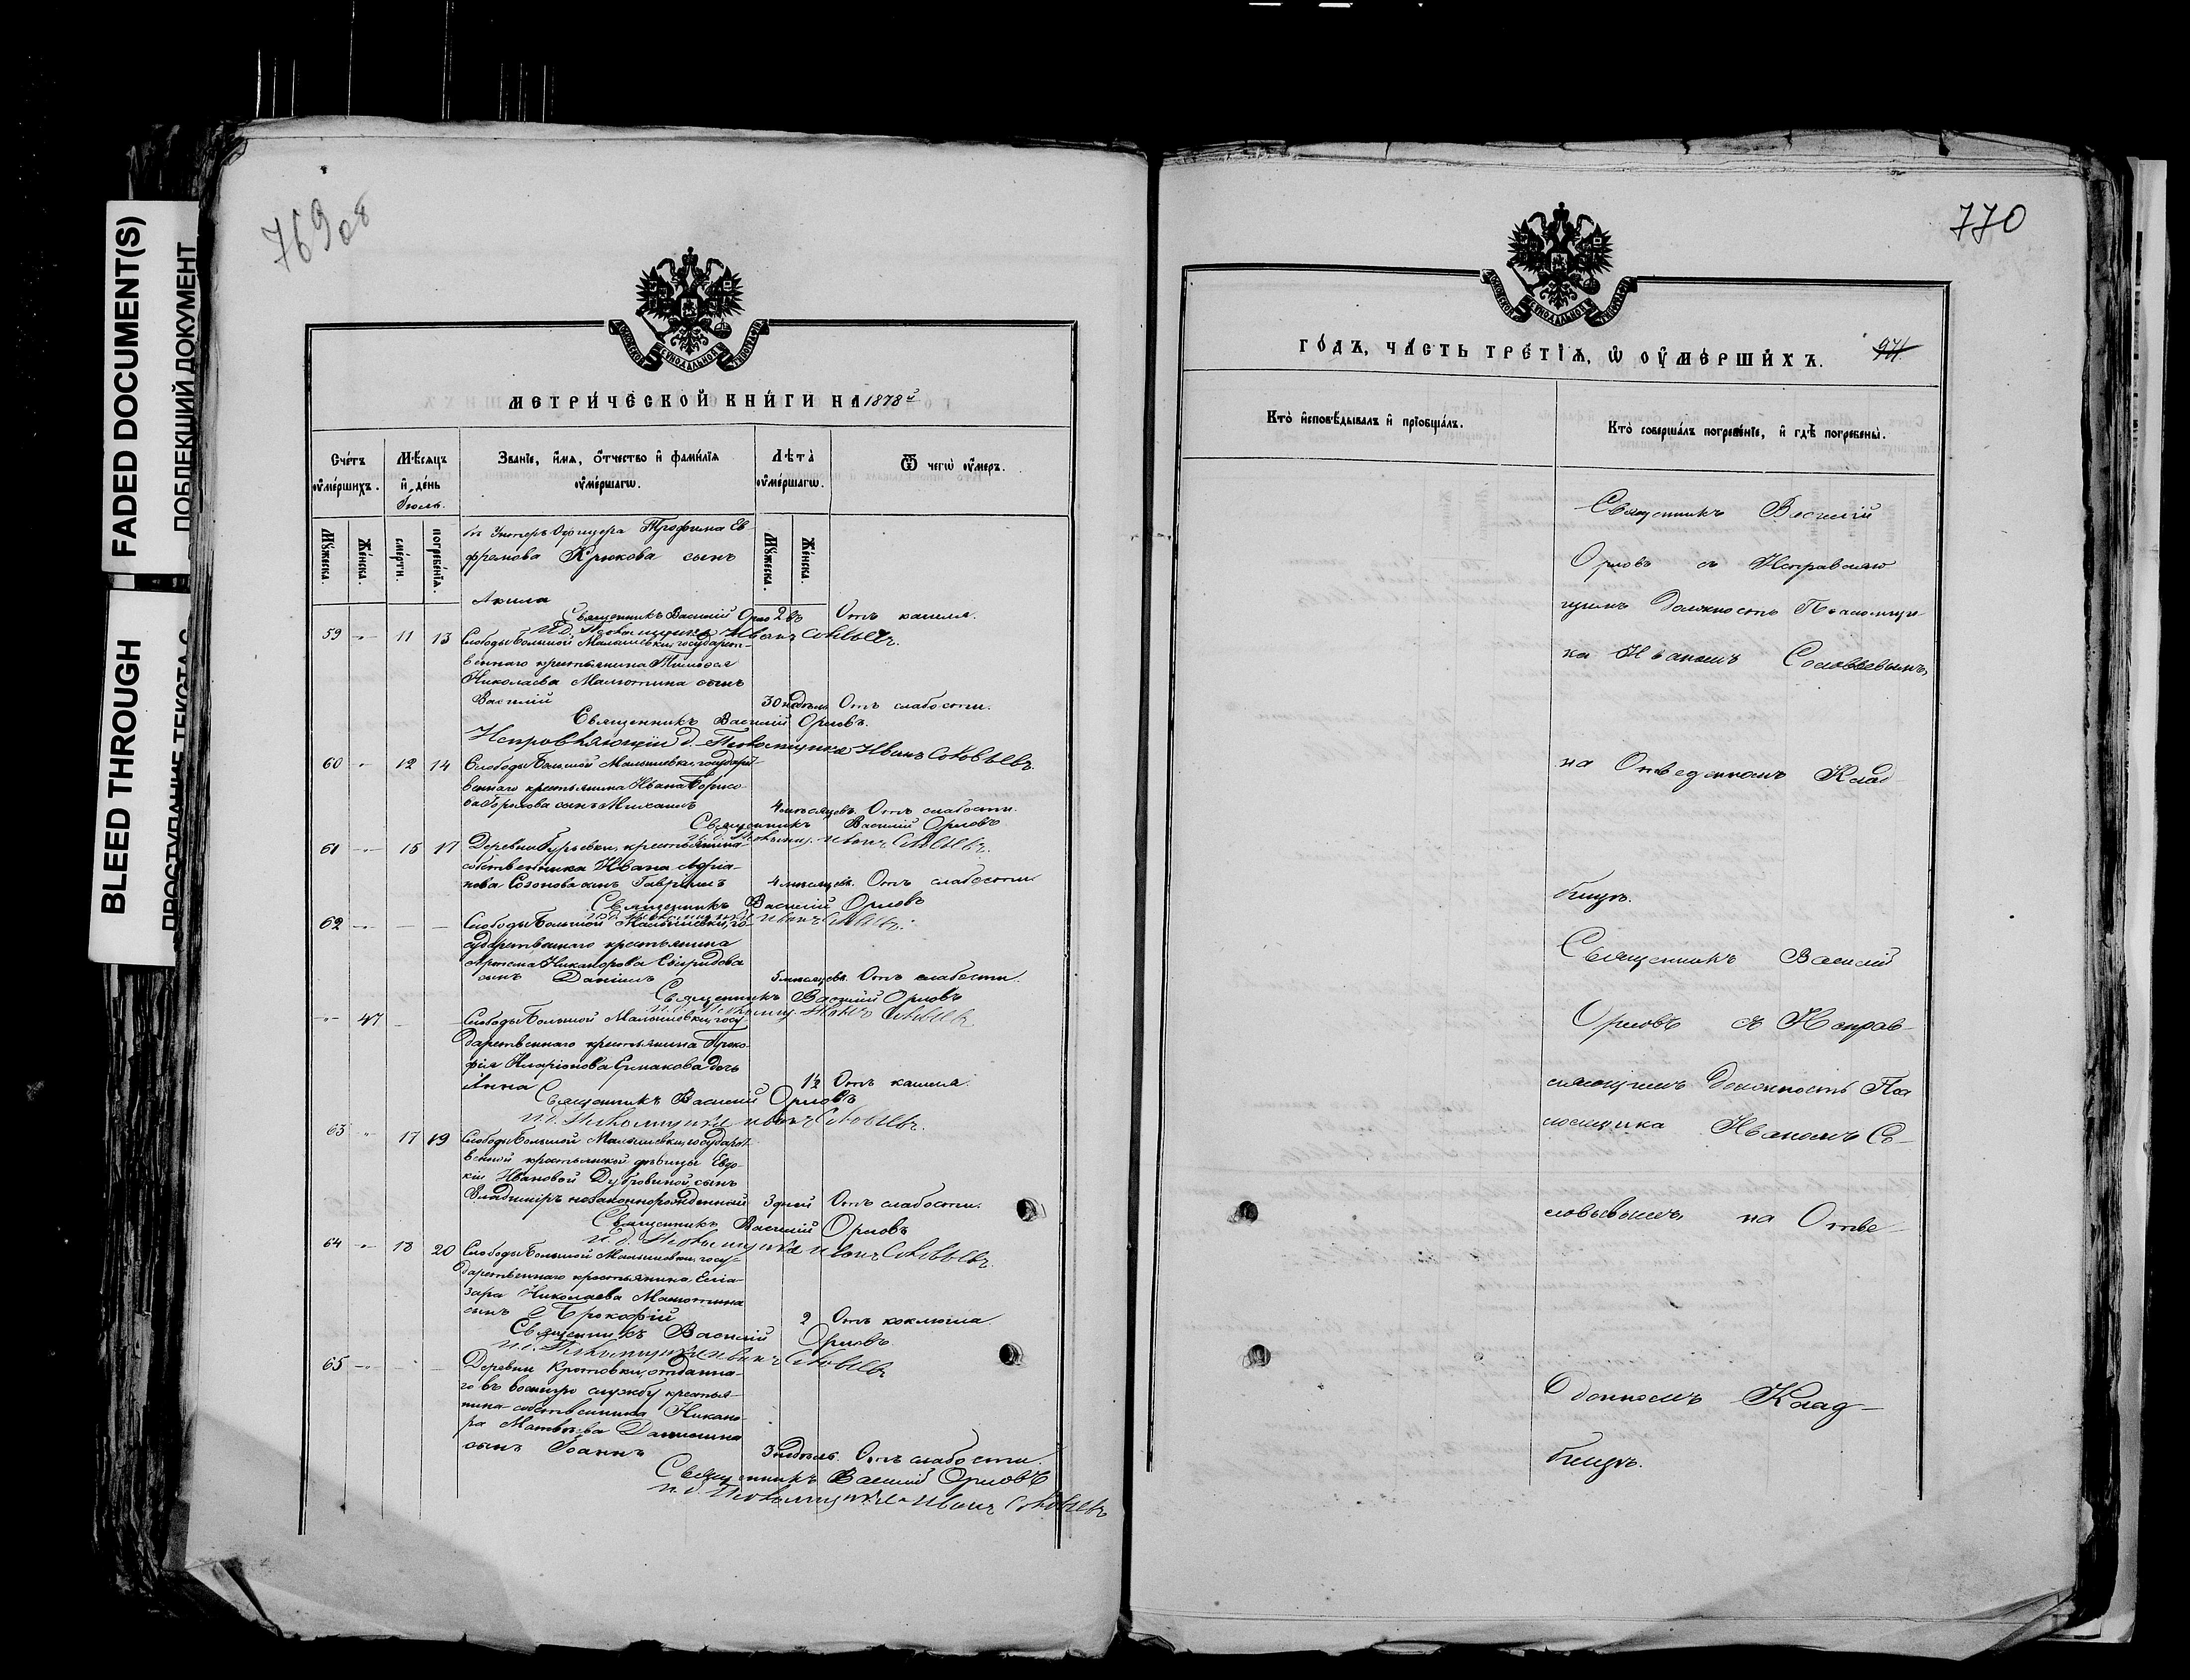 FADED DOCUMENT(S)
ПОБЛЕКШИЙ ДОКУМЕНТ
BLEED THROUGH
ПРОСТУПАНИЕ ТЕКСТА С
769 об
МОСКОВСКОЙ СѴНОДАЛЬНОЙ ТИПОГРАФІИ
МЕТРИ́ЧЕСКОЙ КНИ́ГИ НА 1878й
Сче́тъ оу҆ме́ршихъ.
Мѣ́сяцъ и҆ де́нь
Іюль.
Зва́нїе, и҆́мя, ѻ҆́тчество и҆ фами́лїя оу҆ме́ршагѡ.
Лѣ́та оу҆ме́ршагѡ.
Ѿ чегѡ̀ оу҆́меръ.
Мꙋ́жеска.
Же́нска.
сме́рти.
погребе́нїя.
Мꙋ́жеска.
Же́нска.
Унтеръ Офицера Трофима Ев
фремова Крюкова сынъ
Акила
Отъ кашля.
Священникъ Василій
59 -"- 11 13 Слободы Большой Малышевки, государст-
веннаго крестьянина Тимофея
Николаева Малютина сынъ
Василій 30 недѣль Отъ слабости.
Священникъ Василій Орловъ.
Исправляющій д. Псаломщика Иванъ Соловьевъ.
60 -"- 12 14 Слободы Большой Малышевки, государст-
веннаго крестьянина Ивана Борисо-
ва Горохова сынъ Михаилъ 4 мѣсяцевъ. Отъ слабости.
Священникъ Василій Орловъ
и.д. Псаломщ. Иванъ Соловьевъ.
61 -"- 15 17 Деревни Гурьевки, крестьянина
собственника Ивана Адріа-
нова Созонова сынъ Гавріилъ 4 мѣсяцевъ. Отъ слабости.
Священникъ Василій Орловъ
и.д. Псаломщика Иванъ Соловьевъ.
62 -"- — — Слободы Большой Малышевки, го-
сударственнаго крестьянина
Артема Никанорова Спиридова
сынъ Даніилъ 5 мѣсяцевъ. Отъ слабости.
Священникъ Василій Орловъ
и.д. Псаломщ. Иванъ Соловьевъ
-"- 47 — — Слободы Большой Малышевки, госу-
дарственнаго крестьянина Проко-
фія Иларіонова Ермакова дочь
Анна 1½ Отъ кашля.
Священникъ Василій Орловъ
и.д. Псаломщика Иванъ Соловьевъ.
63 -"- 17 19 Слободы Большой Малышевки, государст-
венной крестьянской дѣвицы Евдо-
кіи Ивановой Дубровиной, сынъ
Владиміръ незаконнорожденный 3 дней Отъ слабости.
Священникъ Василій Орловъ
и.д. Псаломщика Иванъ Соловьевъ.
64 -"- 18 20 Слободы Большой Малышевки, госу-
дарственнаго крестьянина, Елиа-
зара Николаева Малютина
сынъ Прокофій 2 Отъ коклюша
Священникъ Василій Орловъ.
и.д. Псаломщика Иванъ Соловьевъ
65 -"- - - Деревни Кротовки, отданна-
го въ военную службу крестья-
нина-собственника Никано-
ра Матвѣева Данилина
сынъ Іоаннъ 3 недѣль. Отъ слабости.
Священникъ Василій Орловъ
и.д. Псаломщика Иванъ Соловьевъ
770
МОСКОВСКОЙ СѴНОДАЛЬНОЙ ТИПОГРАФІИ
ГО́ДЪ, ЧА́СТЬ ТРЕ́ТЇЯ, Ѡ҆ ОУ҆МЕ́РШИХЪ.
971
Кто̀ и҆сповѣ́дывалъ и҆ прїѡбща́лъ.
Кто̀ соверша́лъ погребе́нїе, и҆ гдѣ̀ погребены̀.
Священникъ Василій
Орловъ съ Исправляю
щимъ Должность Псаломщи
ка Иваномъ Соловьевымъ,
на Отведенномъ Клад
бищѣ.
Священникъ Василій
Орловъ съ Исправ-
ляющимъ Должность Пса
ломщика Иваномъ Со-
ловьевымъ, на Отве-
денномъ Клад-
бищѣ.